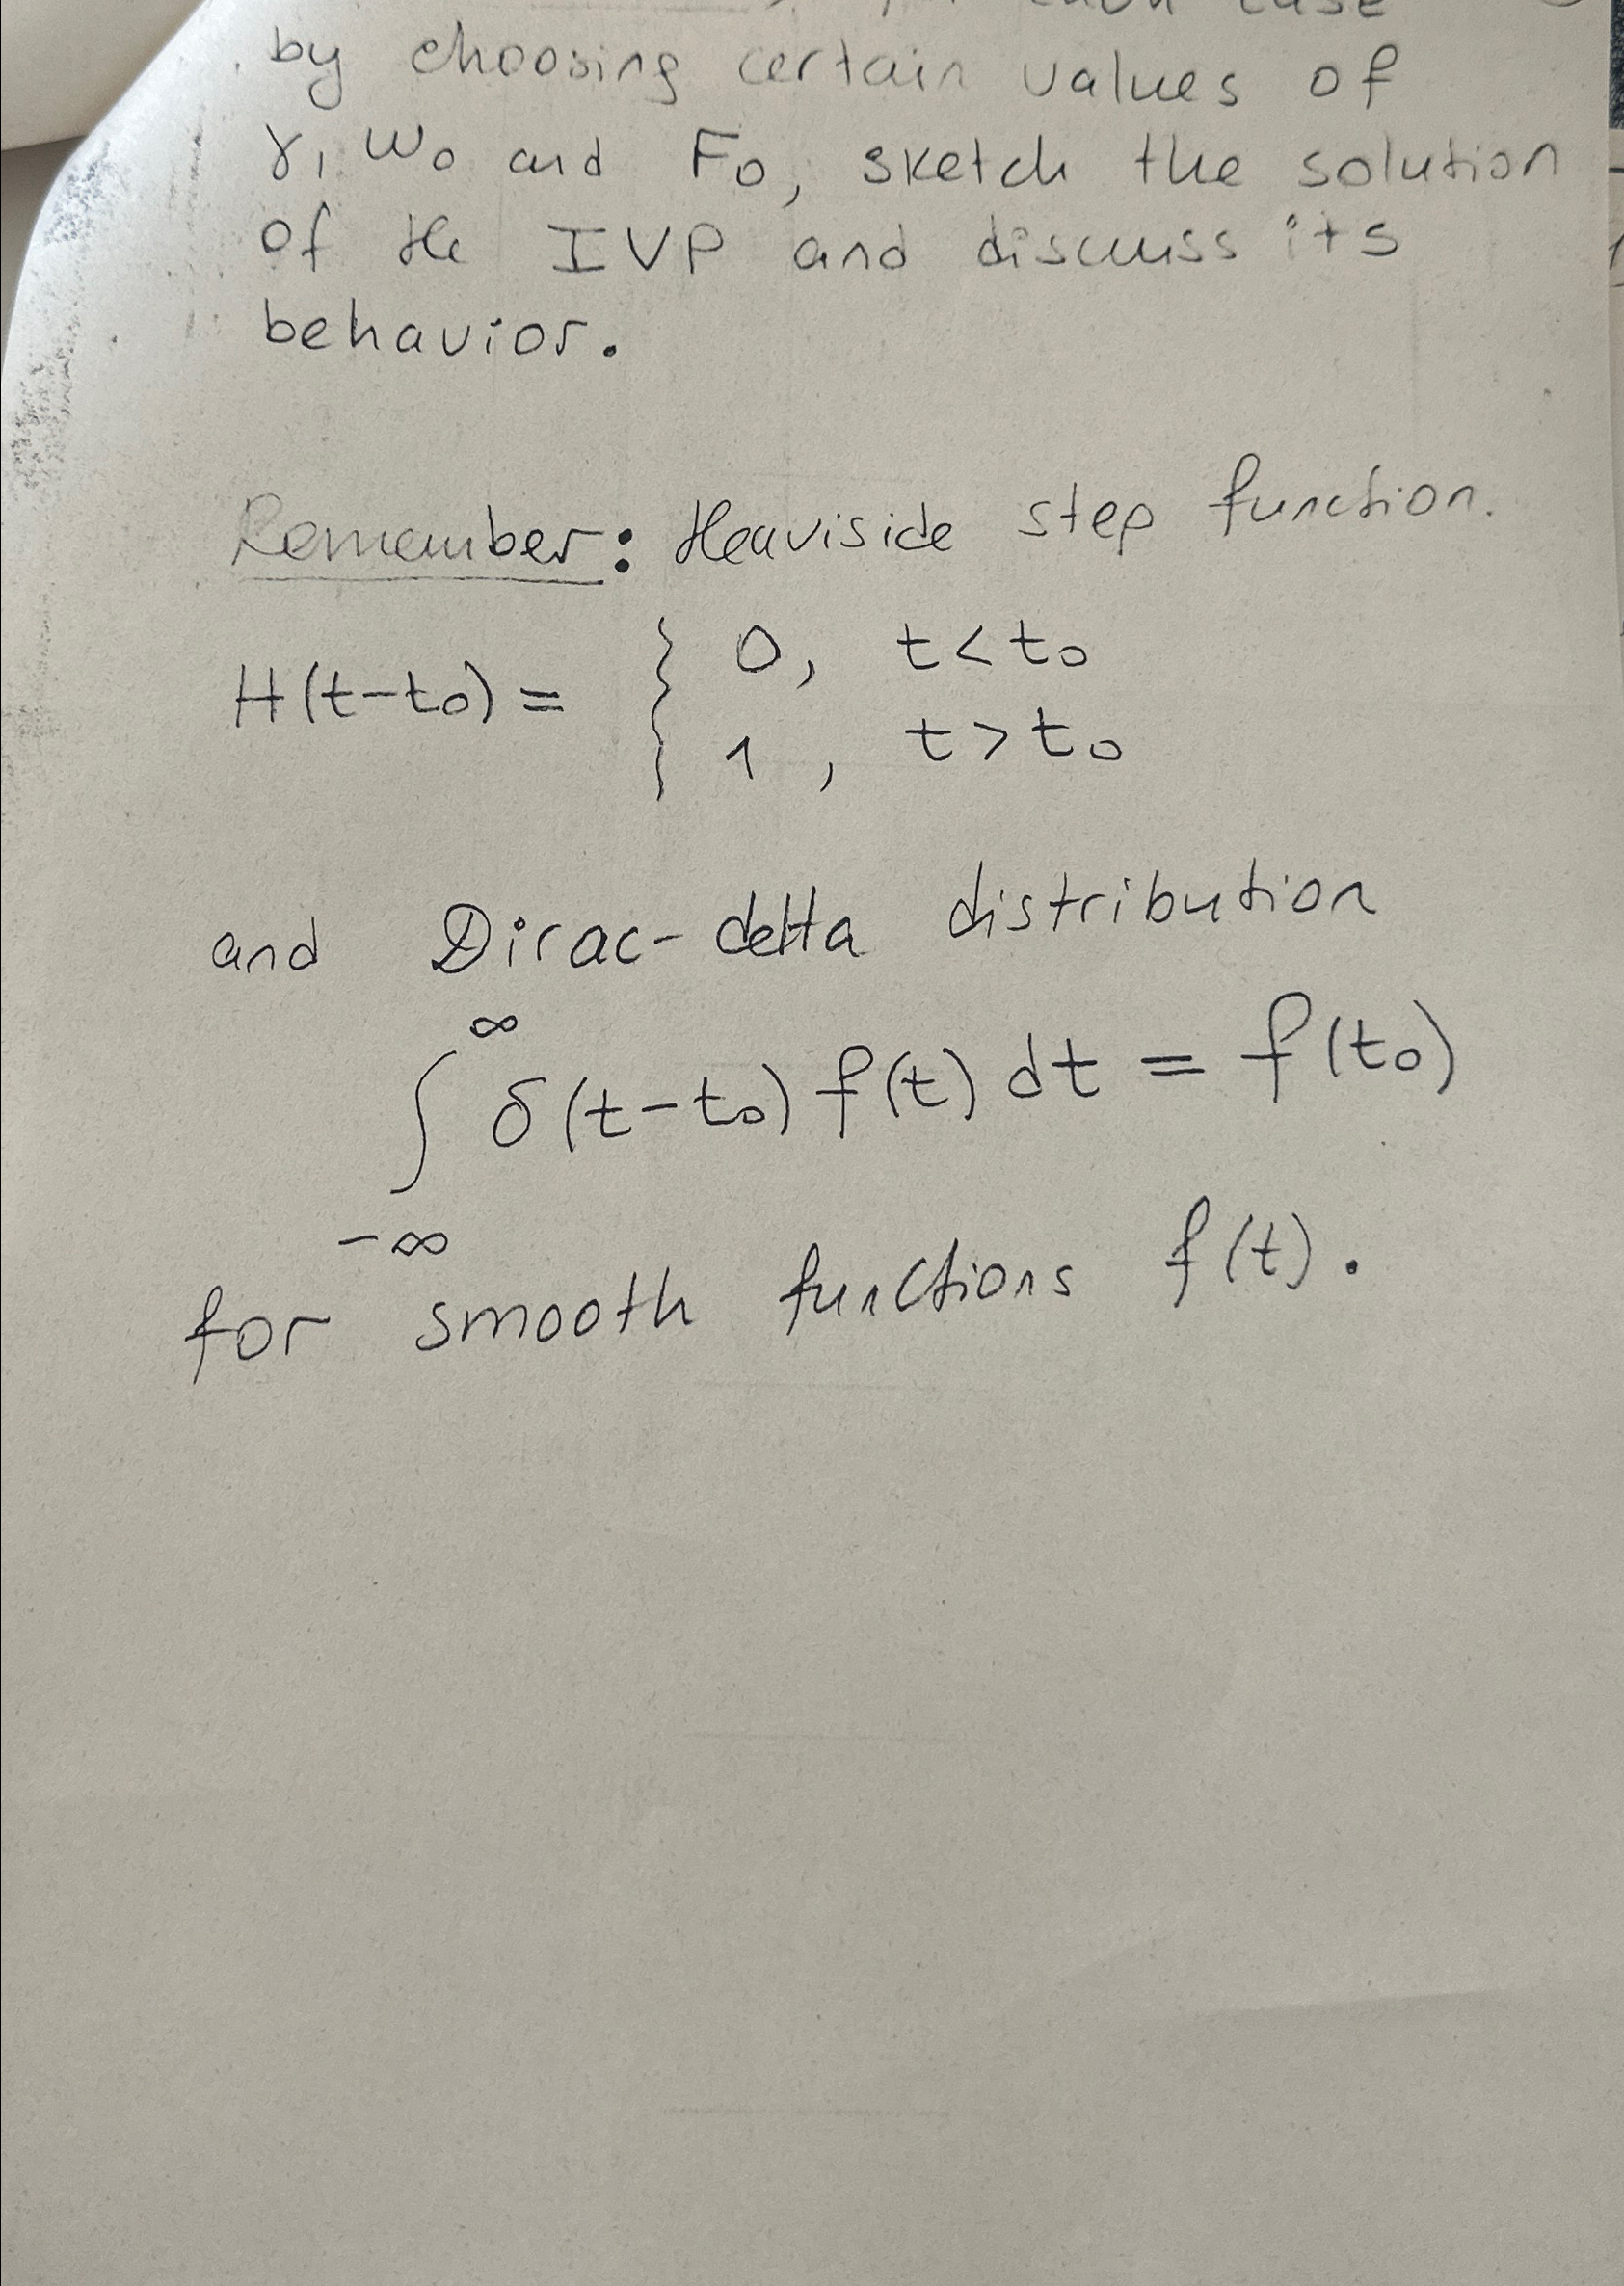 each case
by choosing certain values of
γ, ω₀ and F₀, sketch the solution
of the IVP and discuss its
behavior.
Remember: Heaviside step function.
H(t-t₀) = { 0, t<t₀
1, t>t₀
and Dirac-delta distribution
∫_{-∞}^{∞} δ(t-t₀) f(t) dt = f(t₀)
for smooth functions f(t).